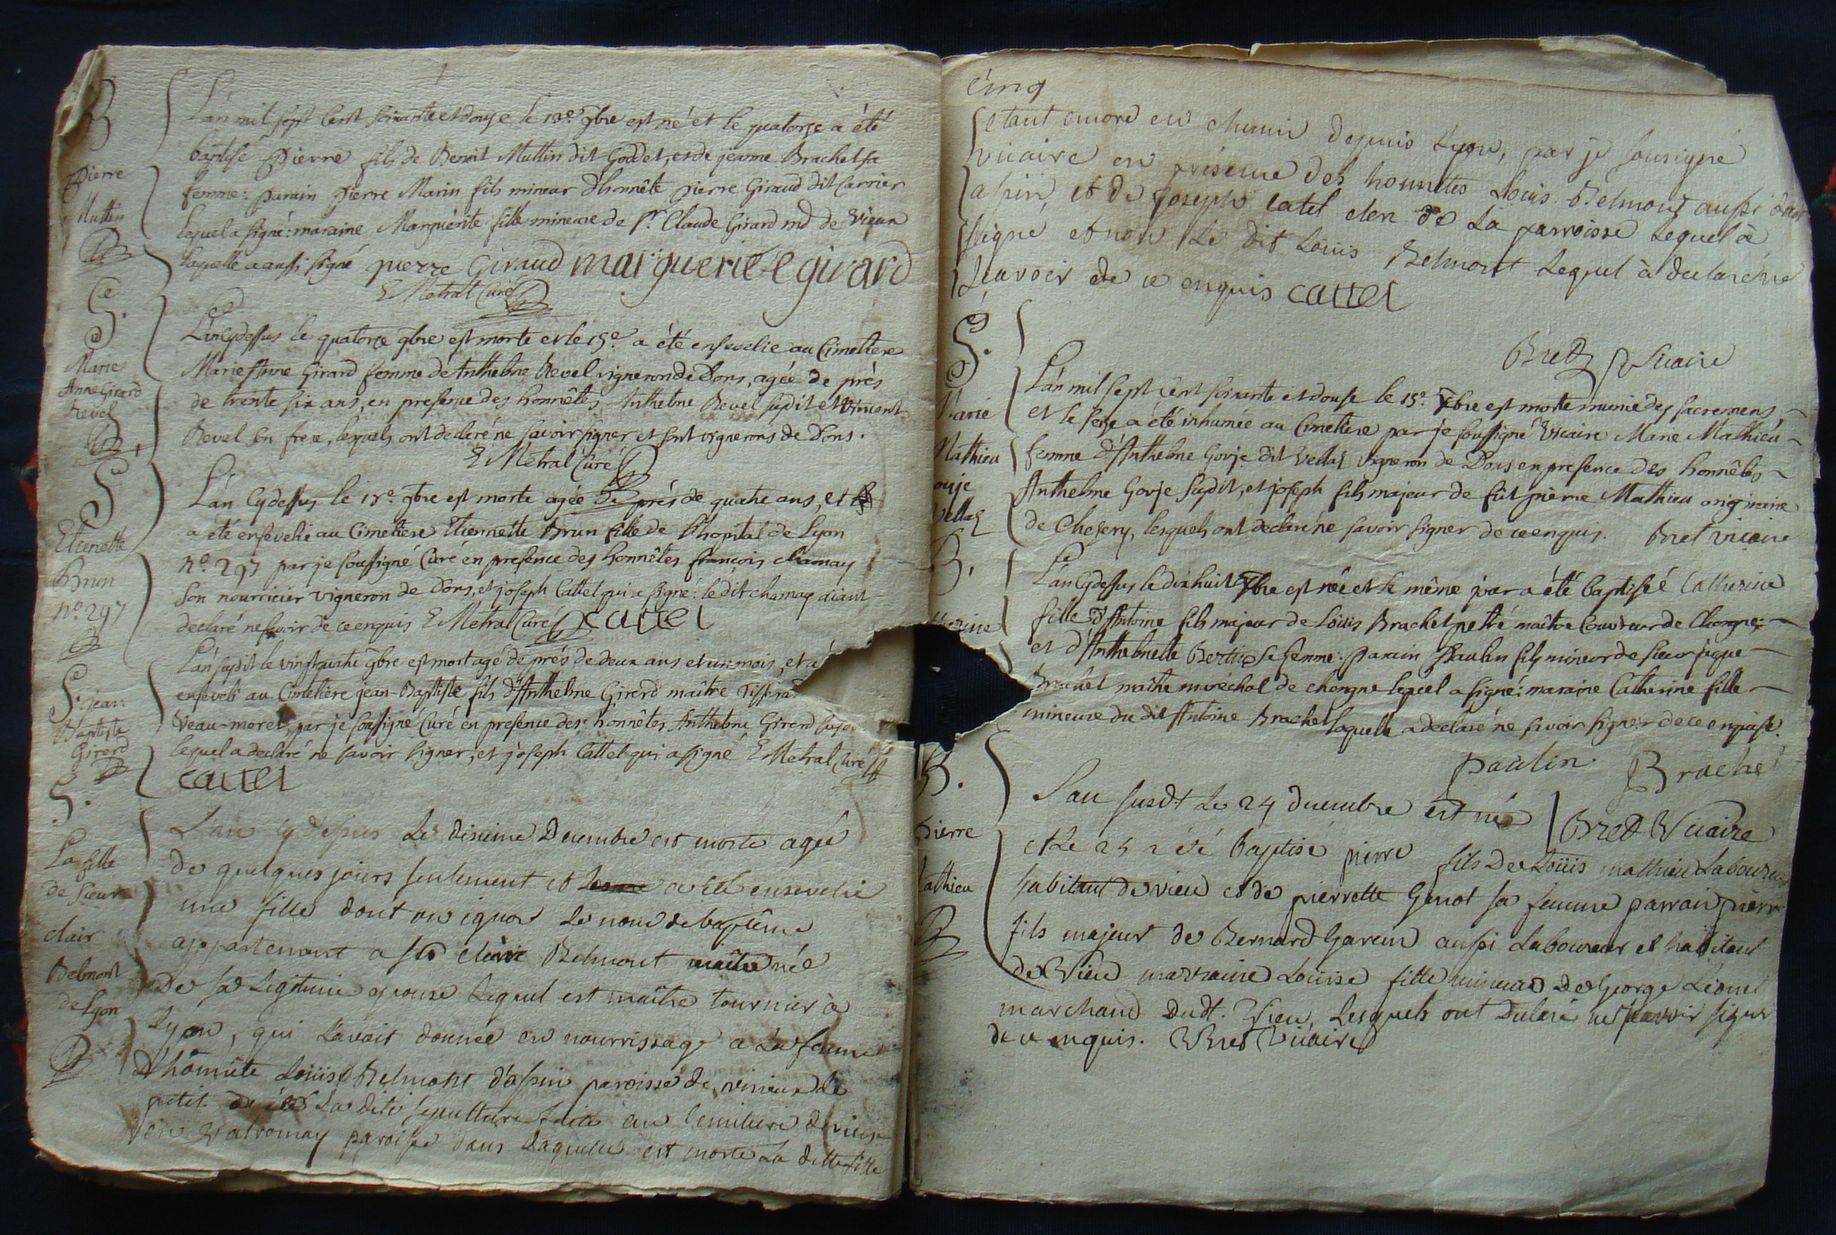 B
Pierre
Muttin
L'an mil sept cent soixante et douze le 13e 9bre est né et le quatorze a été
baptisé Pierre fils de Benoit Muttin dit Godet, et de jeanne Brachet sa
femme: parain Pierre Marin fils mineur d'honnête Pierre Giraud dit Carrier
lequel a signé: maraine Marguerite fille mineure de Sr. Claude Girard md de Vieux
laquelle a aussi signé pierre Giraud marguerite girard
E Metral Curé
S.
Marie
Anne Girard
Revel
L'an Cydessus le quatorze 9bre est morte et le 15e a été ensevelie au Cimetiere
Marie Anne Girard femme de Anthelme Revel vigneron de Dons, agée de près
de trente six ans, en presence des honnêtes Anthelme Revel susdit et Vincent
Revel son frere, lesquels ont declaré ne savoir signer et sont vignerons de Dons.
E Metral Curé
S
Etienette
Brun
no. 297
L'an Cydessus le 18e 9bre est morte agée de près de quatre ans, et
a été ensevelie au Cimetiere Etiennette Brun fille de l'hopital de Lyon
no. 297 par je soussigné Curé en presence des honnêtes françois Chamay
son nourricier vigneron de Dons, et joseph Cattel qui a signé: le dit chamay aiant
declaré ne savoir de ce enquis E Metral Curé Cattel
S. jean
Baptiste
Girerd
L'an susdit le vingt quatre 9bre est mort agé de près de deux ans et un mois, et a
enseveli au Cimetière jean-Baptiste fils d'Anthelme Girerd maître
Veau-moret, par je soussigné Curé en presence des honnêtes Anthelme Girerd
lequel a declaré ne savoir signer; et joseph Cattel qui a signé E Metral Curé
Cattel
S.
La fille
de Sieur
clair
Belmont
de Lyon
L'an cy dessus Le dixieme Decembre est morte agée
de quelques jours seulement et a été ensevelie
une fille dont on ignore le nom de baptême
appartenant a Sr claire Belmont née
de sa Legitime epouse lequel est maître tournier à
Lyon, qui l'avait donnée en nourrissage a La femme
d'honnête Loüis Belmont d'assin paroisse de virieu le
petit La dite sepulture faite au cemitiere de vieux
en valromay paroisse dans Laquelle est morte La ditte fille
cinq
etant encore en chemin depuis Lyon, par je sousigné
vicaire en présence des honnêtes Louis Belmont aussi d'as
assin, et de Joseph catel clerc de La parroisse Lequel à
signé et non Le dit Loüis Belmont Lequel à declaré ne
sçavoir de ce enquis Cattel
Bret Vicaire
S.
Marie
Mathieu
ouje
vellaz
L'an mil sept cent soixante et douse le 15e. Xbre est morte munie des sacremens
et le seize a été inhumée au Cimetiere par je soussigné Vicaire Marie Mathieu
femme d'Anthelme Gouje dit vellaz vigneron de Dons en presence des honnêtes
Anthelme Gouje susdit, et joseph fils majeur de fût pierre Mathieu originaire
de Chezery, lesquels ont declaré ne savoir signer de ce enquis. Bret vicaire
B.
L'an Cydessus le dix huit Xbre est née et le même jour a été baptisée Catherine
fille d'Antoine fils majeur de Loüis Brachet maître Couvreur de Chongne;
et d'Anthelmette Berthet sa femme: parain Paulin fils mineur de sieur
Brachet maître marechal de chongne lequel a signé: maraine Catherine fille
mineure du dit Antoine Brachet laquelle a declaré ne savoir signer de ce enquise.
paulin Brachet
Bret Vicaire
B.
Pierre
Mathieu
L'an susdt Le 24 decembre est né
et Le 25 a été baptisé pierre fils de Loüis mathieu Laboureur
habitant de vieu et de pierrette Genot sa femme parrain pierre
fils majeur de Bernard Garein aussi Laboureur et habitant
de Vieu marraine Loüise fille mineure de George Leonet
marchand dudt. Vieu, Lesquels ont declaré ne savoir signer
de ce enquis. Bret Vicaire